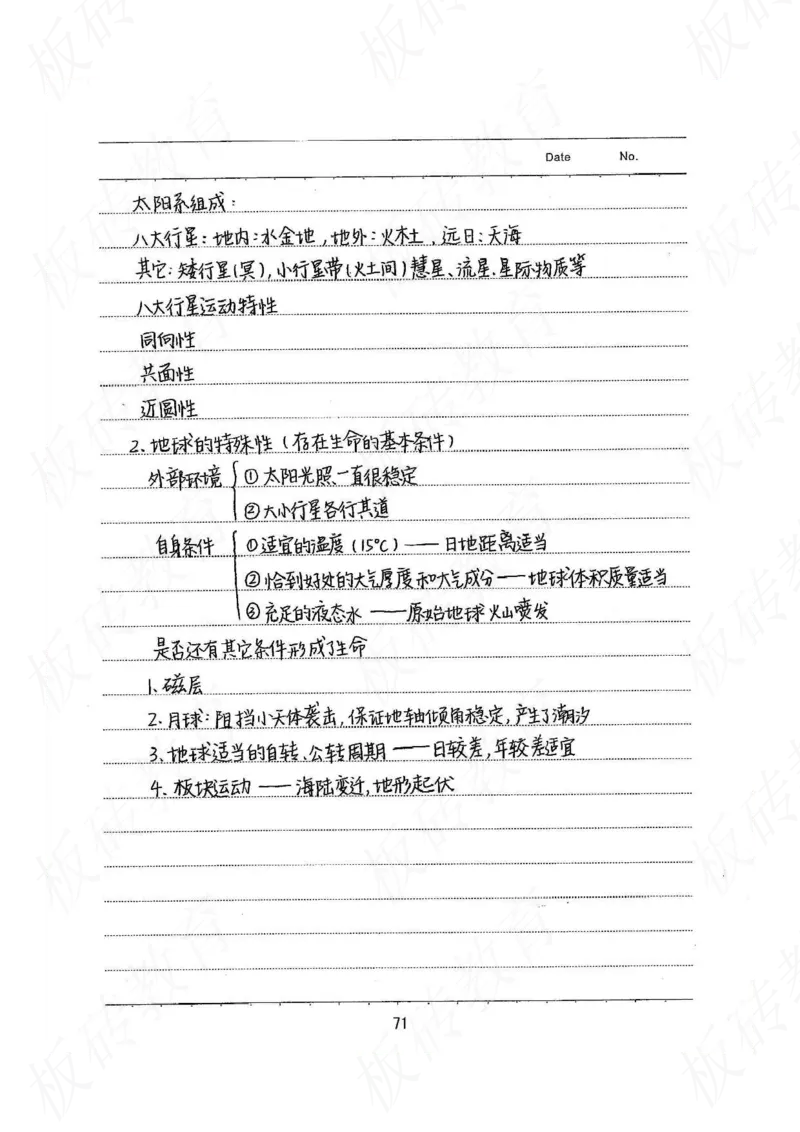 Date No.
太阳系组成：
八大行星：地内：水金地，地外：火木土，远日：天海
其它：矮行星(冥)，小行星带(火土间)慧星、流星、星际物质等
八大行星运动特性
同向性
共面性
近圆性
2、地球的特殊性（存在生命的基本条件）
外部环境 ①太阳光照一直很稳定
②大小行星各行其道
自身条件 ①适宜的温度(15℃)——日地距离适当
②恰到好处的大气厚度和大气成分——地球体积质量适当
③充足的液态水——原始地球火山喷发
是否还有其它条件形成了生命
1、磁层
2、月球：阻挡小天体袭击，保证地轴倾角稳定，产生了潮汐
3、地球适当的自转、公转周期——日较差，年较差适宜
4、板块运动——海陆变迁，地形起伏
71
板砖教育